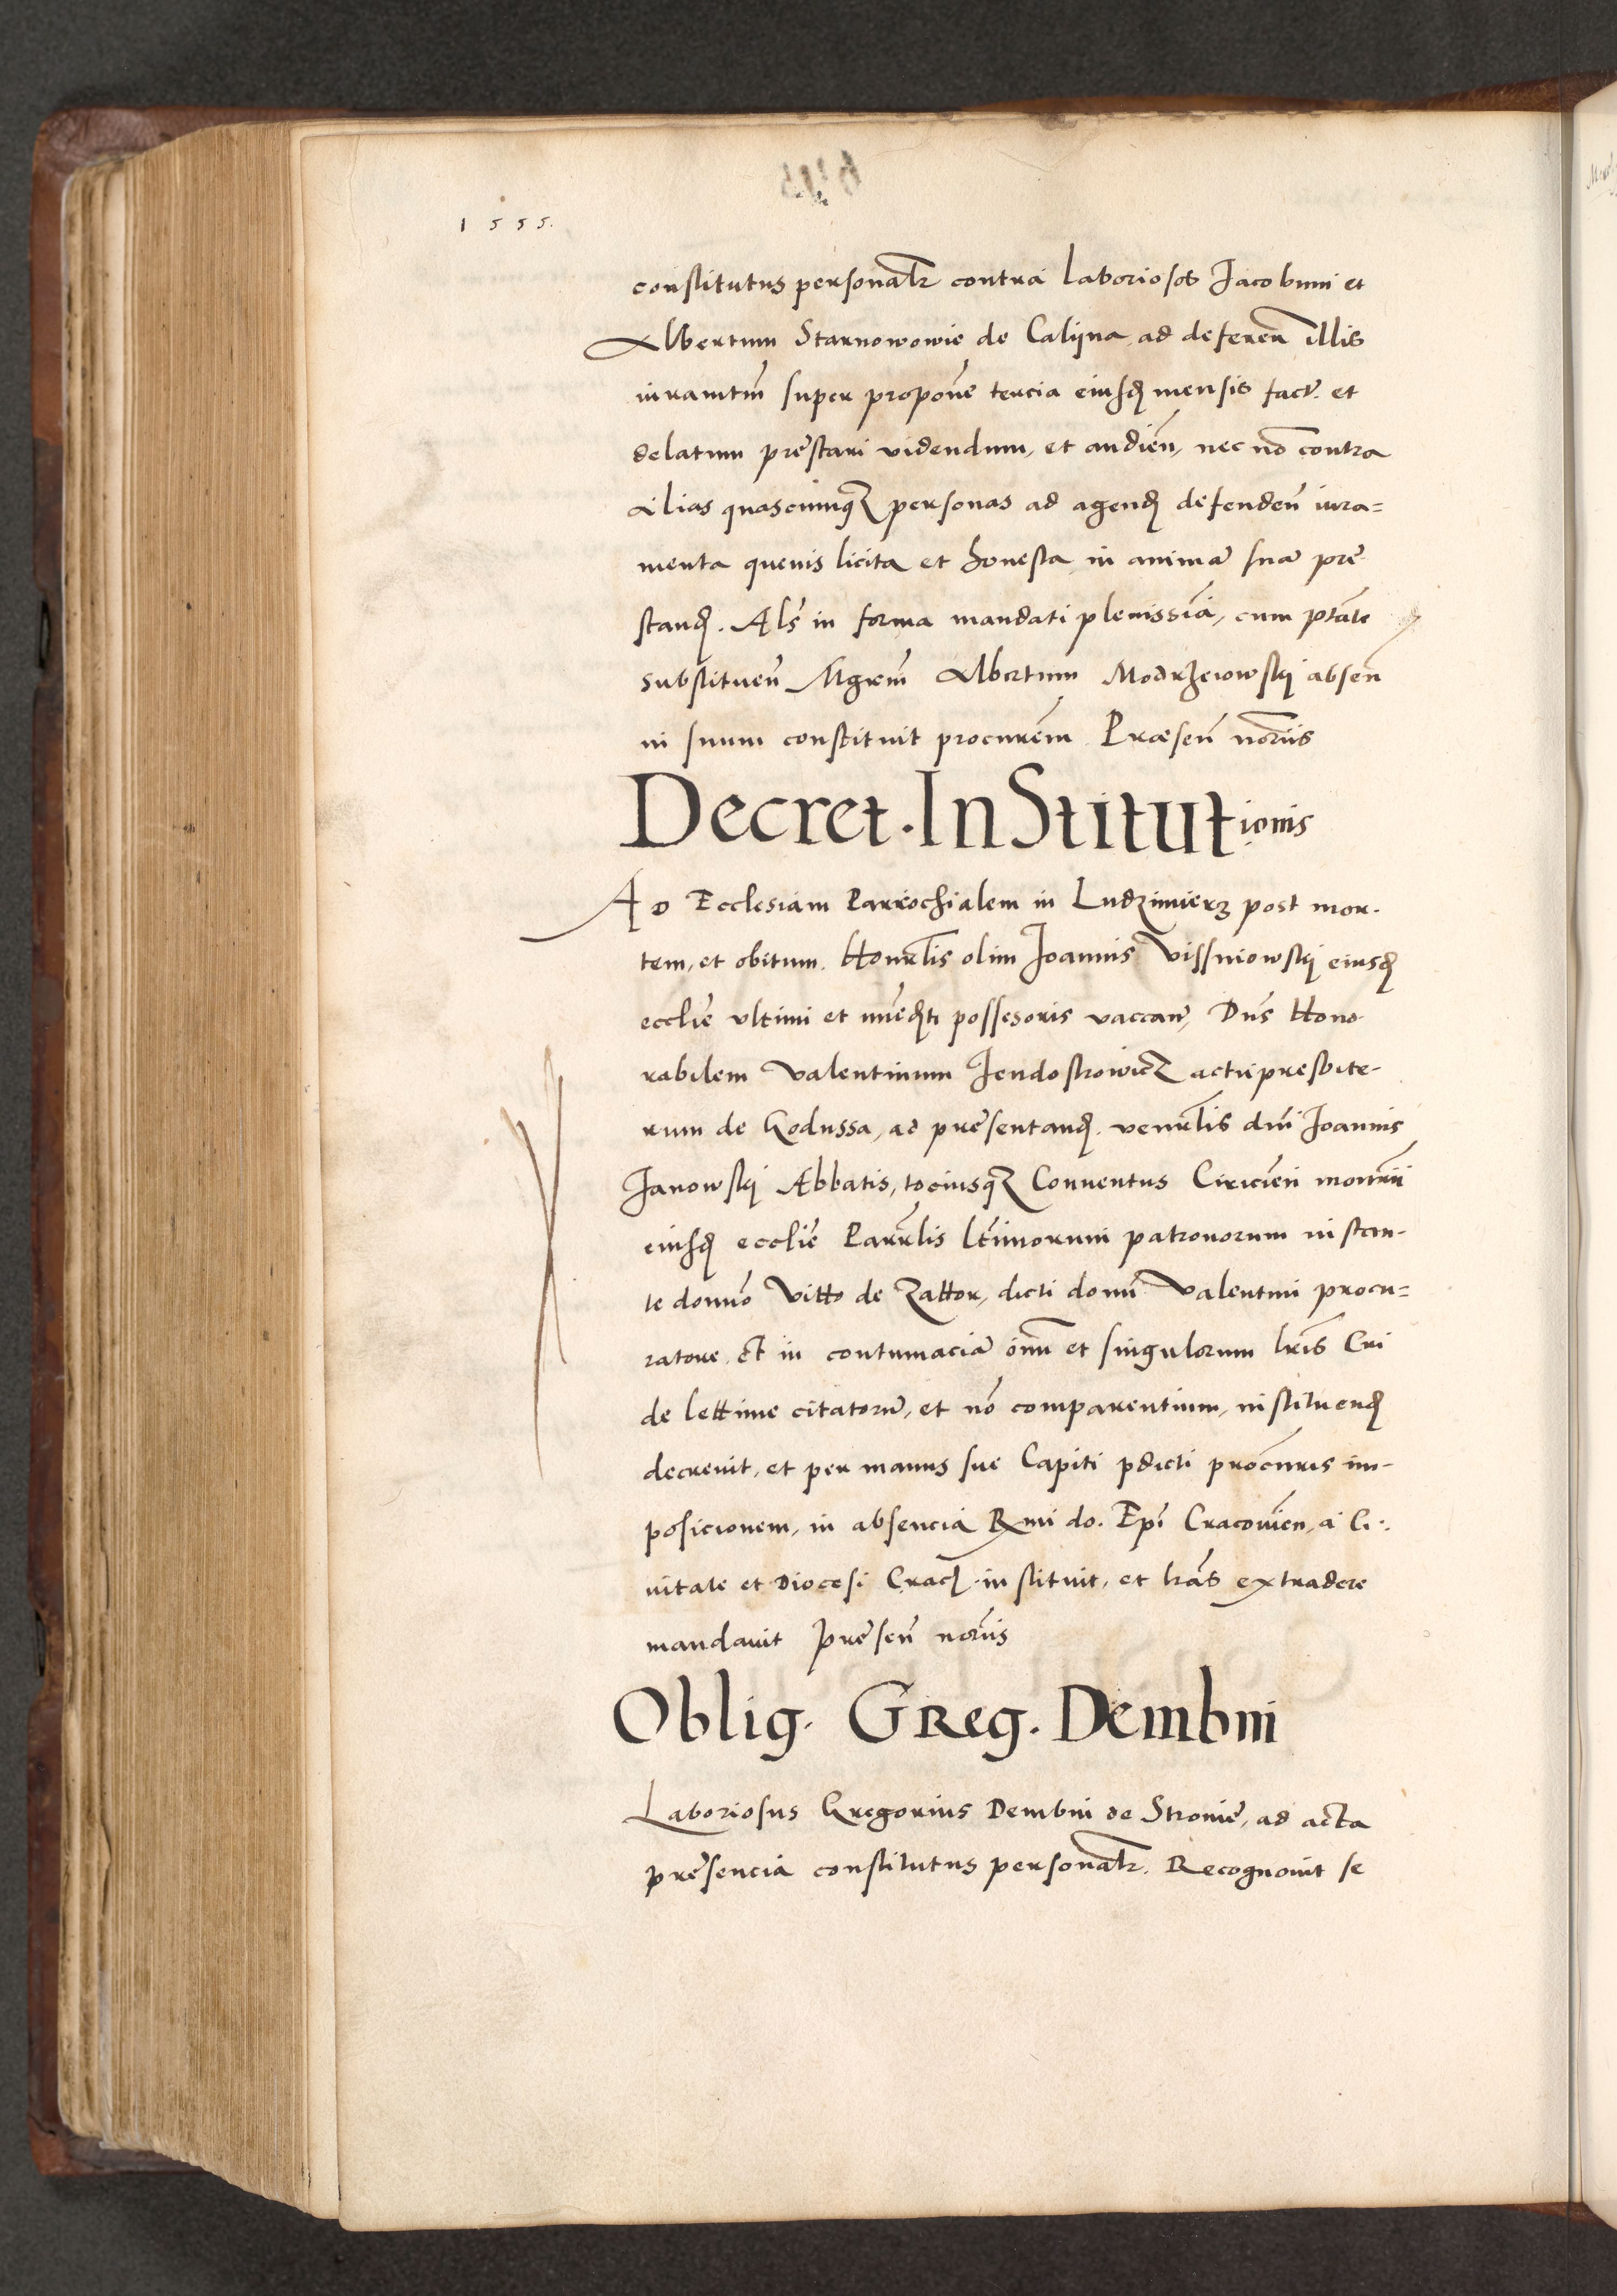 1555.
constitutus personalr contra laboriosos Jacobum et
Albertum Starnowowie de Calijna ad deferen̄ illis
iuramtm̄ super propone tercia eiusdȩ mensis fact. et
delatum prestari videndum, et audien̄, nec nō contra
alias quascumqȝ personas ad agendȩ defenden̄ iura=
menta quevis licita et honesta in animā suā pre
standȩ. Als̄ in forma mandati plenissiā, cum ptāte
substituen̄ Mgrm̄ Albertum Modrzeiowskj absen̄
in suum constituit procurem̄ Præsen̄ norijs
Decret. InStitutionis
AD Ecclesiam Parrochialem in Ludzimierz post mor.
tem, et obitum. Honrlis olim Joannis Vissniowskj eiusdȩ
ecclīe ultimi et im̄edti possesoris vaccan̄, Dn̄s Hono
rabilem Valentinum Jendostrowicz actu presbite-
rum de Godussa, ad presentandȩ. venrlis dn̄i Joannis
Janowskj Abbatis, tociusqȝ Conventus Ciricien̄ mon̄rij
eiusdȩ ecclīe Parrlis ltīmorum patronorum instan-
te domīo Vitto de Zattor, dicti domī Valentini procu=
ratore. Et in contumaciā om̄ et singulorum lrīs Cri
de lettime citatorū, et nō comparentium, instituendȩ
decrevit, et per manus sue Capiti pdicti procuris im-
posicionem, in absencia Rmi do. Epī Cracovien̄, a Ci.
vitate et Diocesi Cracȩ. instituit, et lrās extradere
mandavit presen̄ norijs
Oblig. GReg. Dembni
Laboriosus Gregorius Dembni de Stronie, ad acta
presencia constitutus personalr. Recognovit se